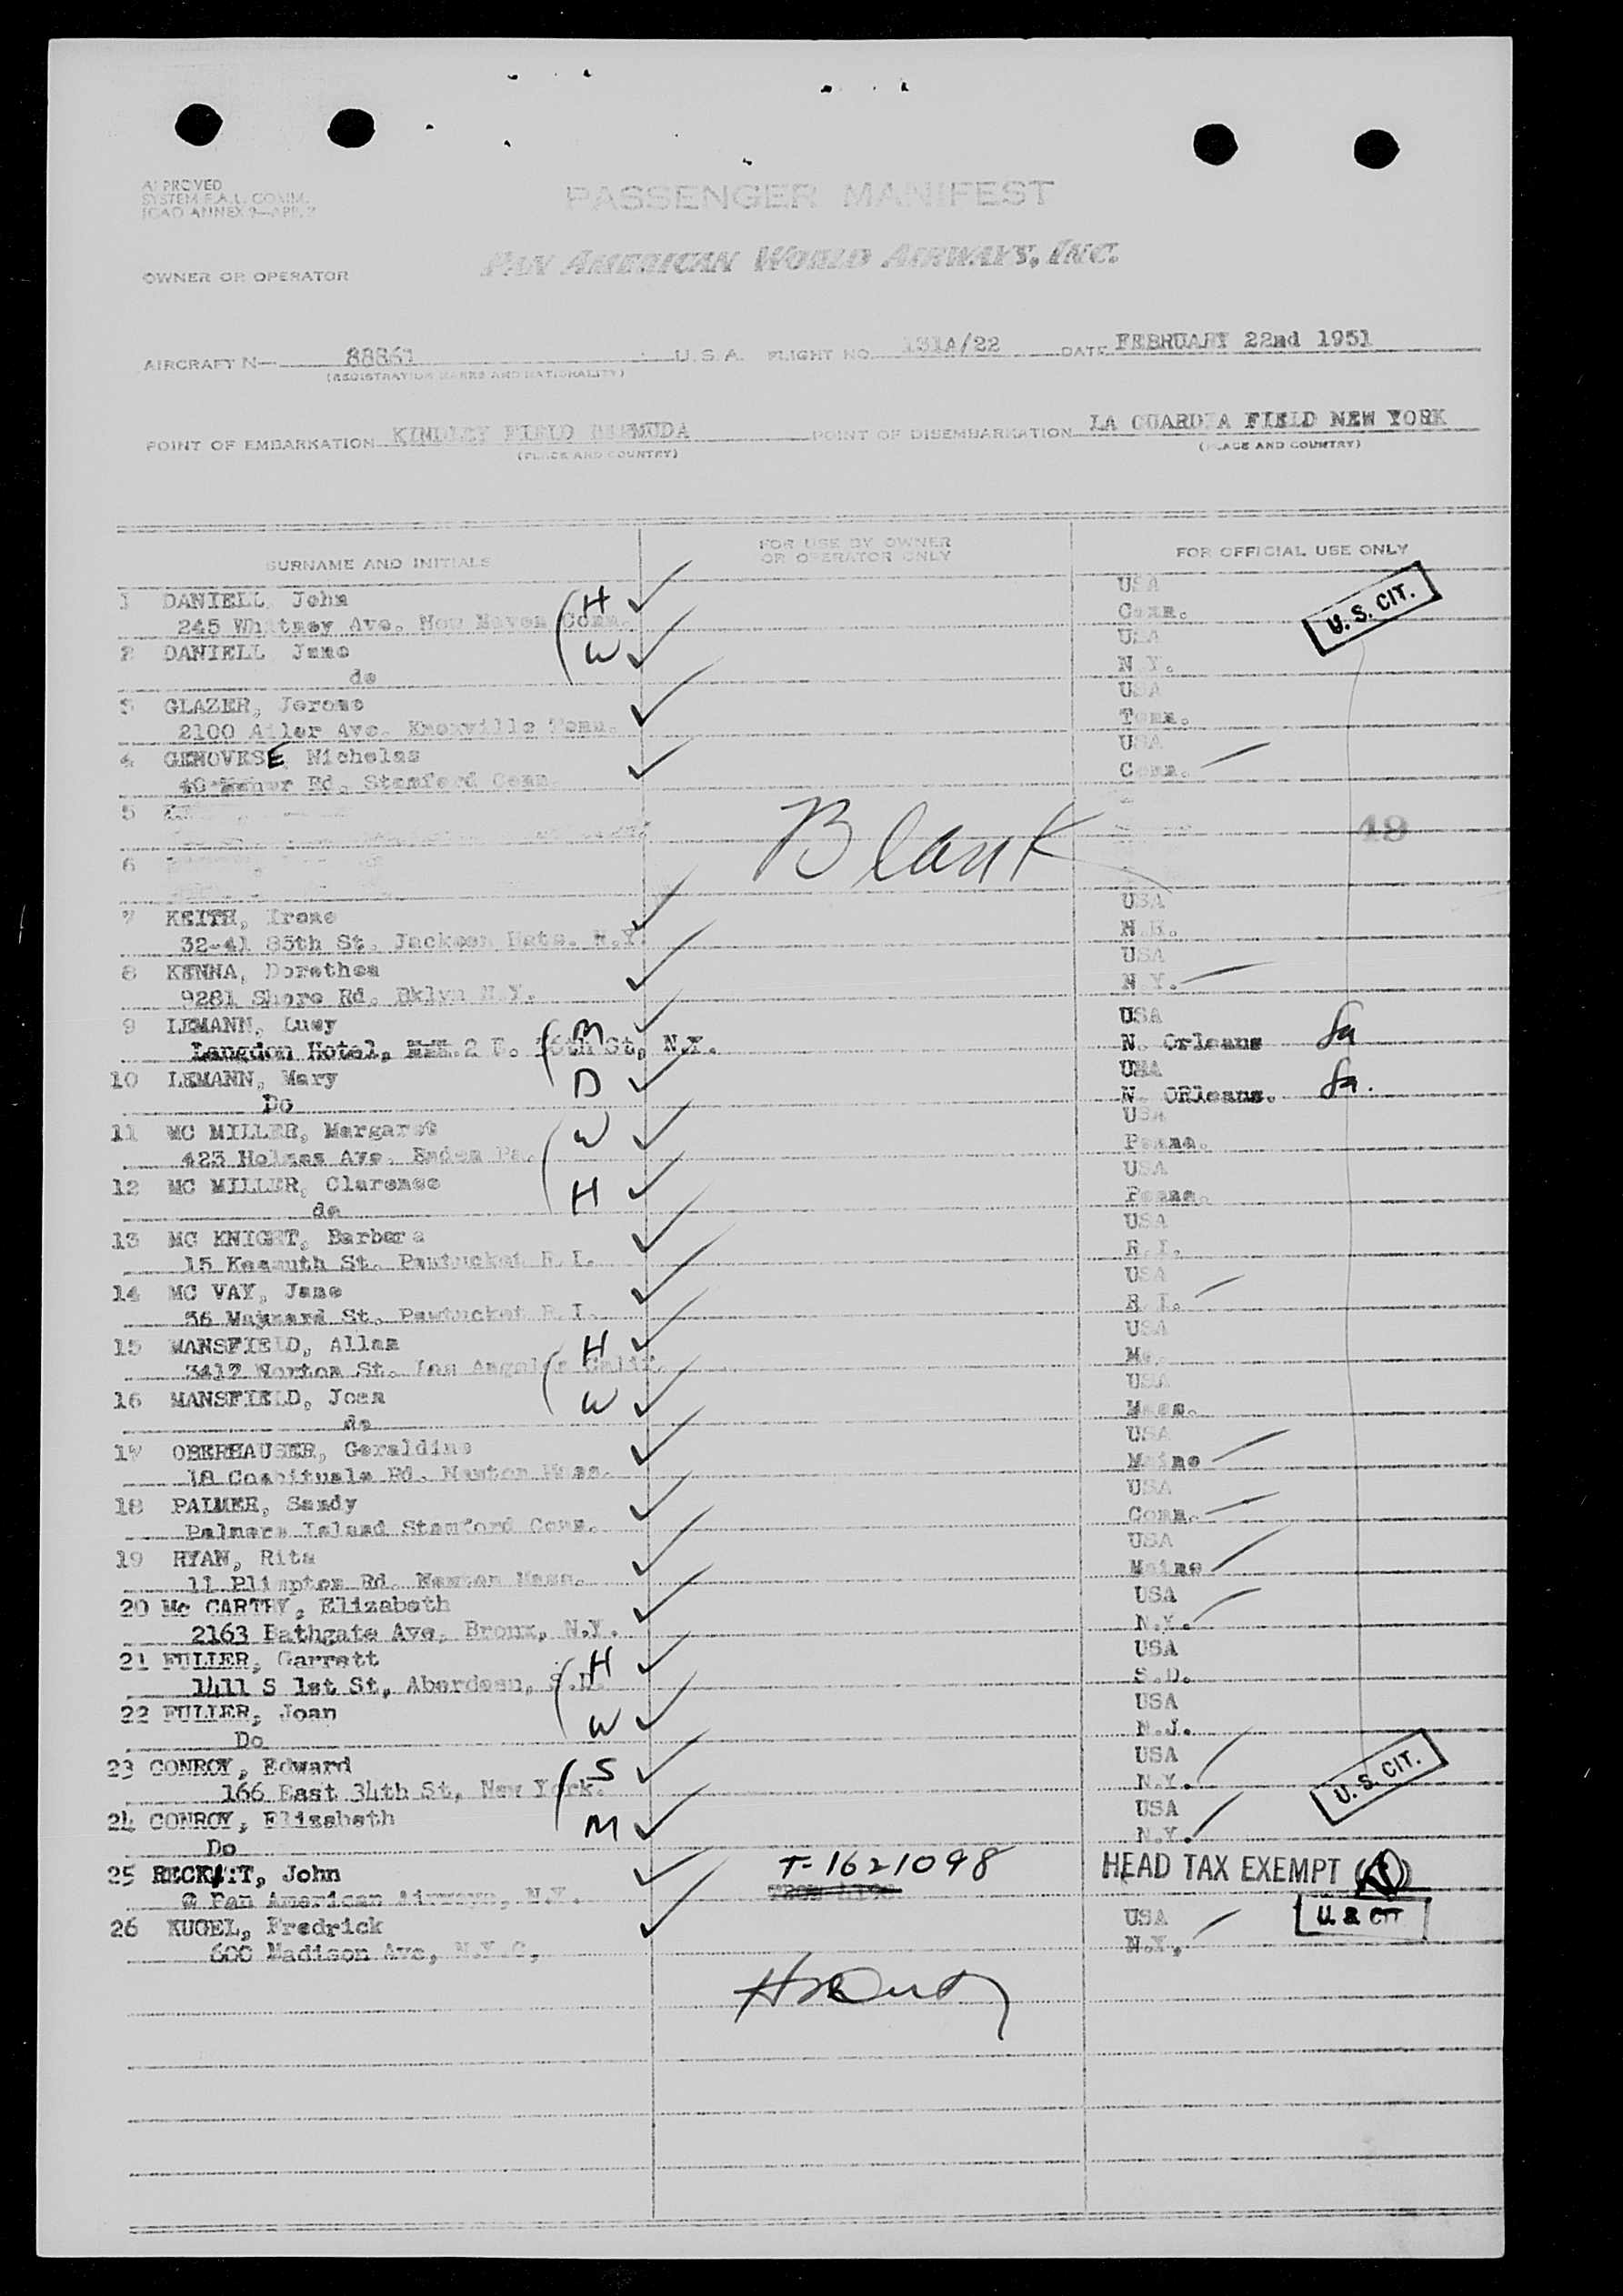 APPROVED
SYSTEM F.A.L. COMM.
ICAO ANNEX 9—APP. 2
PASSENGER MANIFEST
PAN AMERICAN WORLD AIRWAYS, INC.
OWNER OR OPERATOR
AIRCRAFT N— 88861 U.S.A. FLIGHT NO. 131A/22 DATE FEBRUARY 22nd 1951
(REGISTRATION MARKS AND NATIONALITY)
POINT OF EMBARKATION KINDLEY FIELD BERMUDA POINT OF DISEMBARKATION LA GUARDIA FIELD NEW YORK
(PLACE AND COUNTRY) (PLACE AND COUNTRY)
SURNAME AND INITIALS FOR USE BY OWNER OR OPERATOR ONLY FOR OFFICIAL USE ONLY
1 DANIELL, John H USA
245 Whitney Ave. New Haven Conn. Conn. U. S. CIT.
2 DANIELL Jane W USA
do N.Y.
3 GLAZER, Jerome USA
2100 Ave. Knoxville Tenn. Tenn.
4 GENOVESE, Nicholas USA
Rd. Stamford Conn. Conn.
5 Blank 49
6
7 KEITH, Irene USA
32-41 85th St. Jackson Hgts. N.Y.
8 KENNA, Dorothea USA
9281 Shore Rd. Bklyn N.Y. N.Y.
9 LEMANN, Lucy M USA
Langdon Hotel, 2 E. 56th St, N.Y. N. Orleans La
10 LEMANN, Mary D USA
Do N. ORleans. La.
11 MC MILLER, Margaret W USA
423 Holmes Ave. Baden Pa. Penna.
12 MC MILLER, Clarence H USA
do Penna.
13 MC KNIGHT, Barbara USA
15 Kossuth St. Pawtucket R.I. R.I.
14 MC VAY, Jane USA
36 Maynard St. Pawtucket R.I. R.I.
15 MANSFIELD, Allan H USA
3417 Norton St. Los Angeles Calif.
16 MANSFIELD, Joan W USA
do Mass.
17 OBERHAUSER, Geraldine USA
18 Rd. Newton Mass. Maine
18 PALMER, Sandy USA
Palmers Island Stamford Conn. Conn.
19 RYAN, Rita USA
11 Plimpton Rd. Newton Mass. Maine
20 Mc CARTHY, Elizabeth USA
2163 Bathgate Ave, Bronx, N.Y. N.Y.
21 FULLER, Garrett H USA
1411 S 1st St, Aberdeen, S.D. S.D.
22 FULLER, Joan W USA
Do N.J.
23 CONROY, Edward S USA
166 East 34th St, New York. N.Y. U. S. CIT.
24 CONROY, Elizabeth M USA
Do N.Y.
25 John T-1621098 HEAD TAX EXEMPT
@ Pan American Airways, N.Y.
26 KUGEL, Fredrick USA U S CIT
600 Madison Ave, N.Y.C, N.Y,